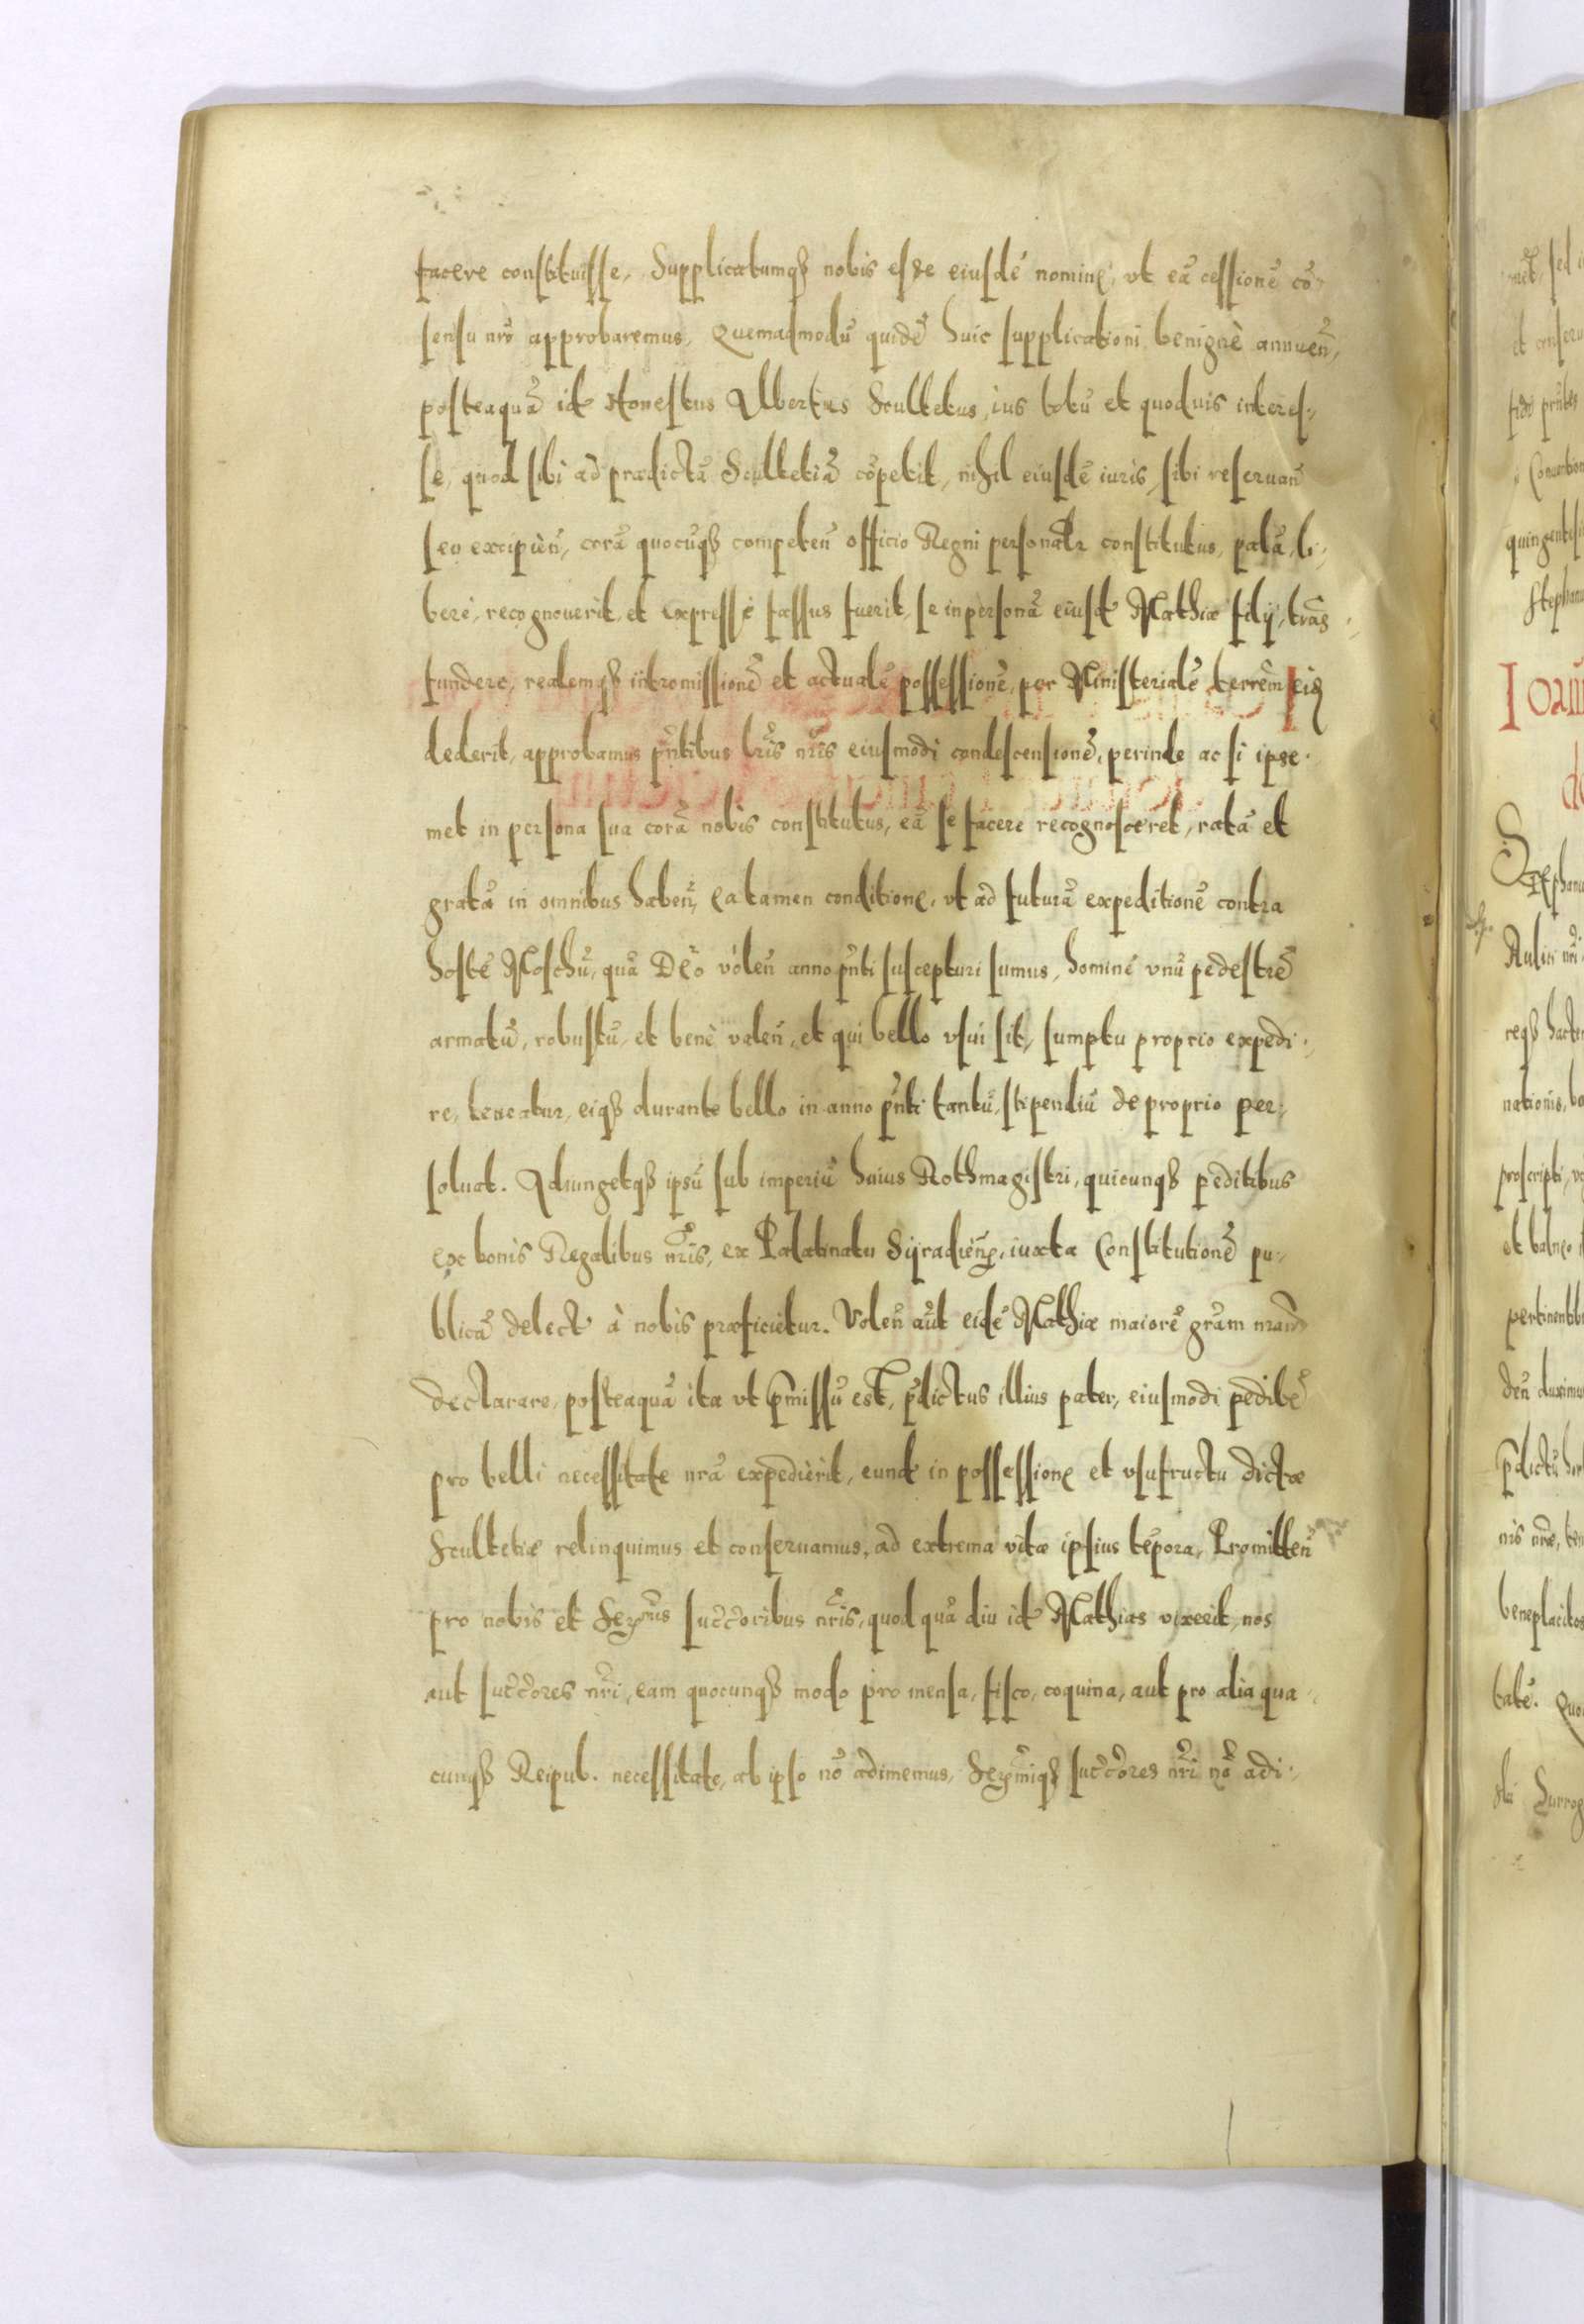 facere constituisse, Supplicatumqȝ nobis esse eiusdē nomine, vt eā cessionē cō-
sensu nrō approbaremus, Quemadmodū quidē huic supplicationi benignè annuen̄,
posteaquā idē Honestus Albertus Scultetus, ius totū et quoduis interes-
se, quod sibi ad prædictā Scultetiā cōpetit, nihil eiusdē iuris, sibi reseruan̄
seu excipien̄, corā quocūqȝ competen̄ officio Regni personalr constitutus, palā, li-
berè, recognouerit, et expressè fassus fuerit, se in personā eiusd Mathiæ filij, trās-
fundere, realemqȝ intromissionē et actualē possessionē, per Ministerialē terrēm eiꝫ
dederit, approbamus pn̄tibus lr̄is nr̄is eiusmodi condescensionē, perinde ac si ipse-
met in persona sua corā nobis constitutus, eā se facere recognosceret, ratā et
gratā in omnibus haben̄, ea tamen conditione, vt ad futurā expeditionē contra
hostē Moschū, quā Deo volen̄ anno pn̄ti suscepturi sumus, hominē vnū pedestrē
armatū, robustū, et benè valen̄, et qui bello vsui sit, sumptu proprio expedi-
re, teneatur, eiqȝ durante bello in anno pn̄ti tantū, stipendiū de proprio per-
soluat. Adiungetqȝ ipsū sub imperiū huius Rothmagistri, quicunqȝ peditibus
ex bonis Regalibus nr̄is, ex Palatinatu Syradien̄, iuxta Constitutionē pu-
blicā delect à nobis præficietur. Volen̄ aūt eidē Mathiæ maiorē grām nram
declarare, posteaquā ita vt p̄missū est, p̄dictus illius pater, eiusmodi peditē
pro belli necessitate nrā expedierit, eund in possessione et vsufructu dictæ
Scultetiæ relinquimus et conseruamus, ad extrema vitæ ipsius tēpora, Promitten̄
pro nobis et Serm̄is succ̄oribus nr̄is, quod quā diu id Mathias vixerit, nos
aut succ̄ores nr̄i, eam quocunqȝ modo pro mensa, fisco, coquina, aut pro alia qua-
cunqȝ Reipub. necessitate, ab ipso nō adimemus, Serm̄iqȝ succ̄ores nr̄i nō adi-